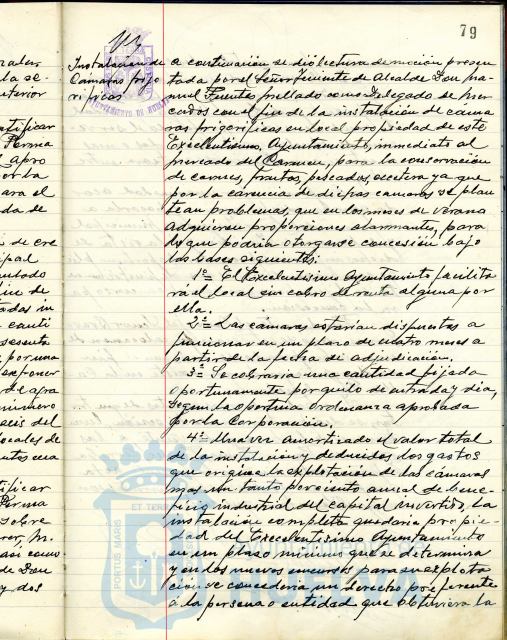 79
Instalacion de
Cámaras frigo
rificas
AYUNTAMIENTO DE HUELVA
a continuación se dio lectura de moción presen
tada por el Señor Teniente de Alcalde Don Ma-
nuel Fuentes, Delegado de Mer
cados con el fin de la instalación de cáma
ras frigorificas en local propiedad de este
Excelentisimo Ayuntamiento, inmediato al
mercado del Carmen, para la conservación
de carnes, frutas, pescados, etcetera ya que
por la carencia de dichas camaras se plan
tean problemas, que en los meses de verano
adquieren proporciones alarmantes, para
lo que podria otorgarse concesión bajo
las bases siguientes:
1ª= El Excelentisimo Ayuntamiento facilita
rá el local sin cobro de renta alguna por
ella.
2ª= Las cámaras estarían dispuestas a
funcionar en un plazo de cuatro meses a
partir de la fecha de adjudicación.
3ª= Se cobraria una cantidad fijada
oportunamente por quilo de entrada y dia,
segun la oportuna ordenanza aprobada
por la Corporación.
4ª= Una vez amortizado el valor total
de la instalación y deducidos los gastos
que origine la explotación de las cámaras
mas un tanto porciento anual de bene
ficio industrial del capital invertido, la
instalación completa quedaria propie-
dad del Excelentisimo Ayuntamiento
en un plazo minimo que se determina
y en los nuevos concursos para su explota
ción se concederia un derecho preferente
á la persona o entidad que obtuviera la
PORTUS MARIS
ET TERRAE
HUELVA